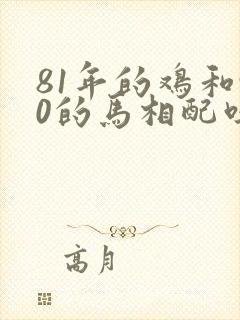 81年的鸡和
0的马相配
高月